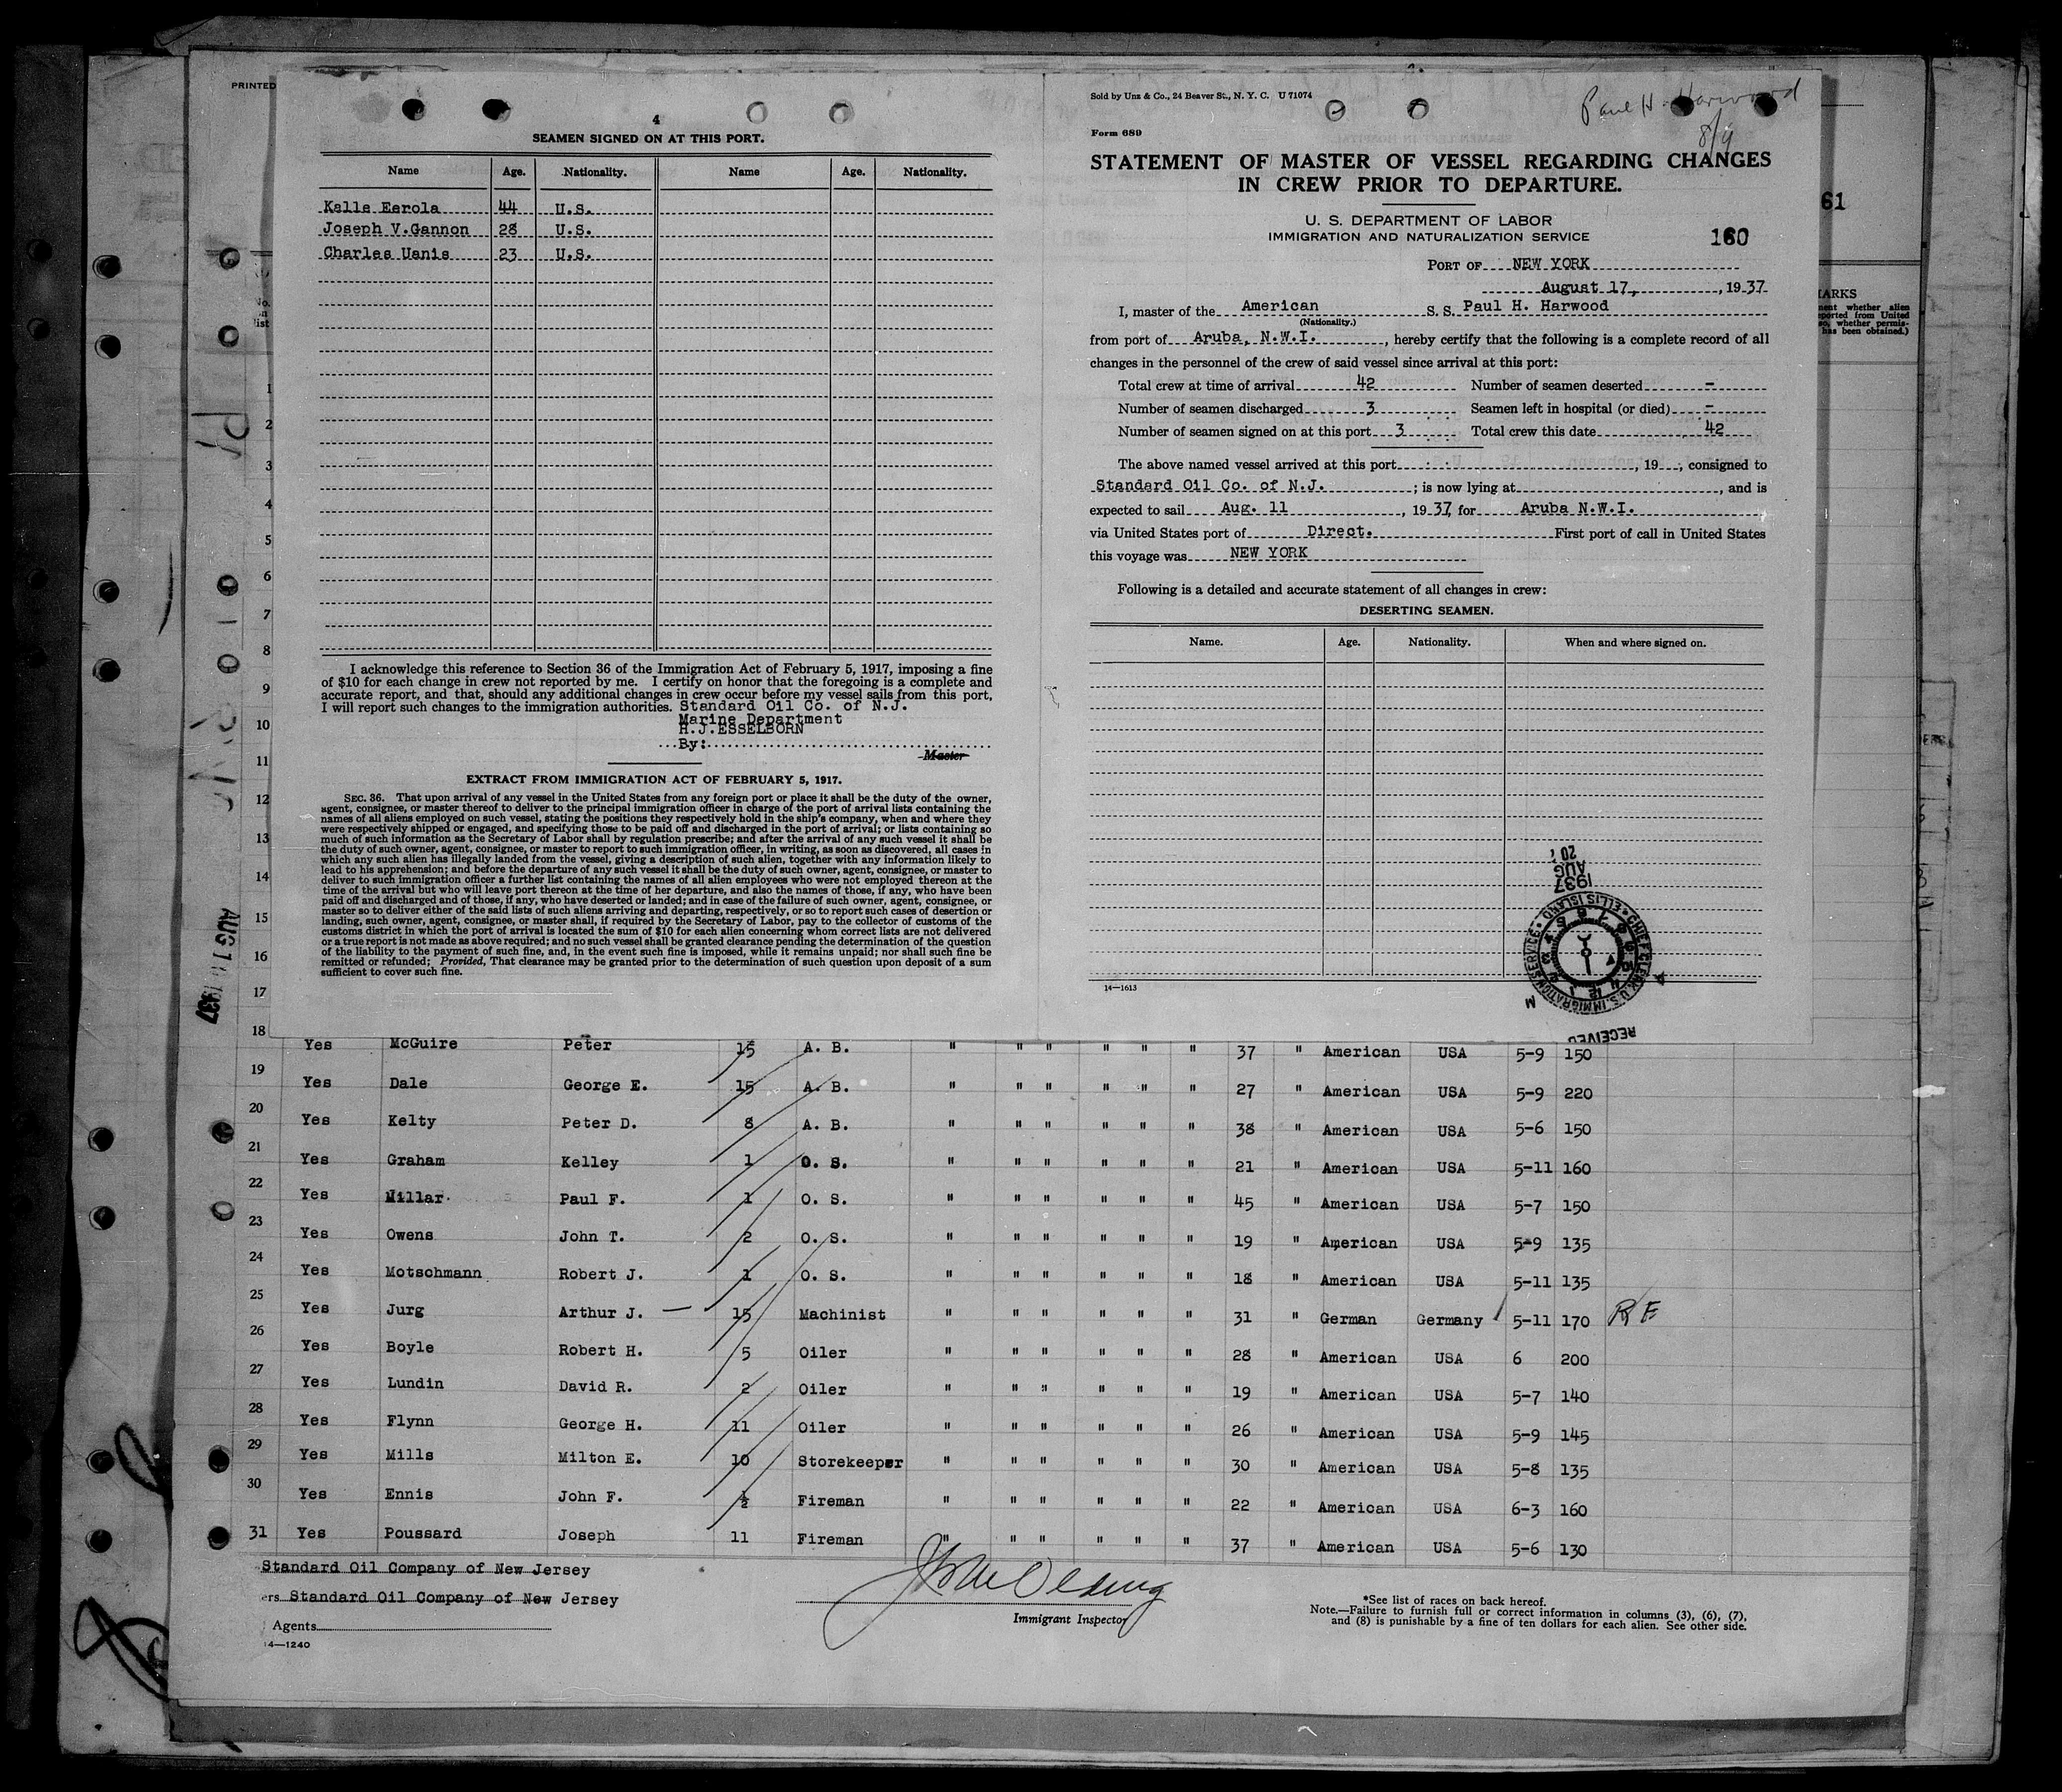 PRINTED
4
SEAMEN SIGNED ON AT THIS PORT.
Name Age. Nationality. Name Age. Nationality.
Kalle Eerola 44 U.S.
Joseph V.Gannon 28 U.S.
Charles Uanis 23 U.S.
I acknowledge this reference to Section 36 of the Immigration Act of February 5, 1917, imposing a fine
of $10 for each change in crew not reported by me. I certify on honor that the foregoing is a complete and
accurate report, and that, should any additional changes in crew occur before my vessel sails from this port,
I will report such changes to the immigration authorities. Standard Oil Co. of N.J.
Marine Department
H.J.ESSELBORN
By:
Master
EXTRACT FROM IMMIGRATION ACT OF FEBRUARY 5, 1917.
SEC. 36. That upon arrival of any vessel in the United States from any foreign port or place it shall be the duty of the owner,
agent, consignee, or master thereof to deliver to the principal immigration officer in charge of the port of arrival lists containing the
names of all aliens employed on such vessel, stating the positions they respectively hold in the ship's company, when and where they
were respectively shipped or engaged, and specifying those to be paid off and discharged in the port of arrival; or lists containing so
much of such information as the Secretary of Labor shall by regulation prescribe; and after the arrival of any such vessel it shall be
the duty of such owner, agent, consignee, or master to report to such immigration officer, in writing, as soon as discovered, all cases in
which any such alien has illegally landed from the vessel, giving a description of such alien, together with any information likely to
lead to his apprehension; and before the departure of any such vessel it shall be the duty of such owner, agent, consignee, or master to
deliver to such immigration officer a further list containing the names of all alien employees who were not employed thereon at the
time of the arrival but who will leave port thereon at the time of her departure, and also the names of those, if any, who have been
paid off and discharged and of those, if any, who have deserted or landed; and in case of the failure of such owner, agent, consignee, or
master so to deliver either of the said lists of such aliens arriving and departing, respectively, or so to report such cases of desertion or
landing, such owner, agent, consignee, or master shall, if required by the Secretary of Labor, pay to the collector of customs of the
customs district in which the port of arrival is located the sum of $10 for each alien concerning whom correct lists are not delivered
or a true report is not made as above required; and no such vessel shall be granted clearance pending the determination of the question
of the liability to the payment of such fine, and, in the event such fine is imposed, while it remains unpaid; nor shall such fine be
remitted or refunded; Provided, That clearance may be granted prior to the determination of such question upon deposit of a sum
sufficient to cover such fine.
Sold by Unz & Co., 24 Beaver St., N. Y. C. U 71074
Paul H. Harwood
8/9
Form 689
STATEMENT OF MASTER OF VESSEL REGARDING CHANGES
IN CREW PRIOR TO DEPARTURE.
U. S. DEPARTMENT OF LABOR
IMMIGRATION AND NATURALIZATION SERVICE
160
PORT OF NEW YORK
August 17, , 1937
I, master of the American S. S. Paul H. Harwood
(Nationality.)
from port of Aruba, N.W.I. , hereby certify that the following is a complete record of all
changes in the personnel of the crew of said vessel since arrival at this port:
Total crew at time of arrival 42 Number of seamen deserted -
Number of seamen discharged 3 Seamen left in hospital (or died) -
Number of seamen signed on at this port 3 Total crew this date 42
The above named vessel arrived at this port , 19 , consigned to
Standard Oil Co. of N.J. ; is now lying at , and is
expected to sail Aug. 11 , 19 37, for Aruba N.W.I.
via United States port of Direct. First port of call in United States
this voyage was NEW YORK
Following is a detailed and accurate statement of all changes in crew:
DESERTING SEAMEN.
Name. Age. Nationality. When and where signed on.
14—1613
RECEIVED
CHIEF CLERK, U.S. IMMIGRATION SERVICE • ELLIS ISLAND •
1937
AUG
20
M
61
ARKS
AUG 1 1937
1
2
3
4
5
6
7
8
9
10
11
12
13
14
15
16
17
18 Yes McGuire Peter 15 A. B. " " " " " " 37 " American USA 5-9 150
19 Yes Dale George E. 15 A. B. " " " " " " 27 " American USA 5-9 220
20 Yes Kelty Peter D. 8 A. B. " " " " " " 38 " American USA 5-6 150
21 Yes Graham Kelley 1 O. S. " " " " " " 21 " American USA 5-11 160
22 Yes Millar Paul F. 1 O. S. " " " " " " 45 " American USA 5-7 150
23 Yes Owens John T. 2 O. S. " " " " " " 19 " American USA 5-9 135
24 Yes Motschmann Robert J. 1 O. S. " " " " " " 18 " American USA 5-11 135
25 Yes Jurg Arthur J. 15 Machinist " " " " " " 31 " German Germany 5-11 170 R F
26 Yes Boyle Robert H. 5 Oiler " " " " " " 28 " American USA 6 200
27 Yes Lundin David R. 2 Oiler " " " " " " 19 " American USA 5-7 140
28 Yes Flynn George H. 11 Oiler " " " " " " 26 " American USA 5-9 145
29 Yes Mills Milton E. 10 Storekeeper " " " " " " 30 " American USA 5-8 135
30 Yes Ennis John F. ½ Fireman " " " " " " 22 " American USA 6-3 160
31 Yes Poussard Joseph 11 Fireman " " " " " " 37 " American USA 5-6 130
Standard Oil Company of New Jersey
ers Standard Oil Company of New Jersey
Agents
14—1240
Immigrant Inspector
*See list of races on back hereof.
Note.—Failure to furnish full or correct information in columns (3), (6), (7),
and (8) is punishable by a fine of ten dollars for each alien. See other side.